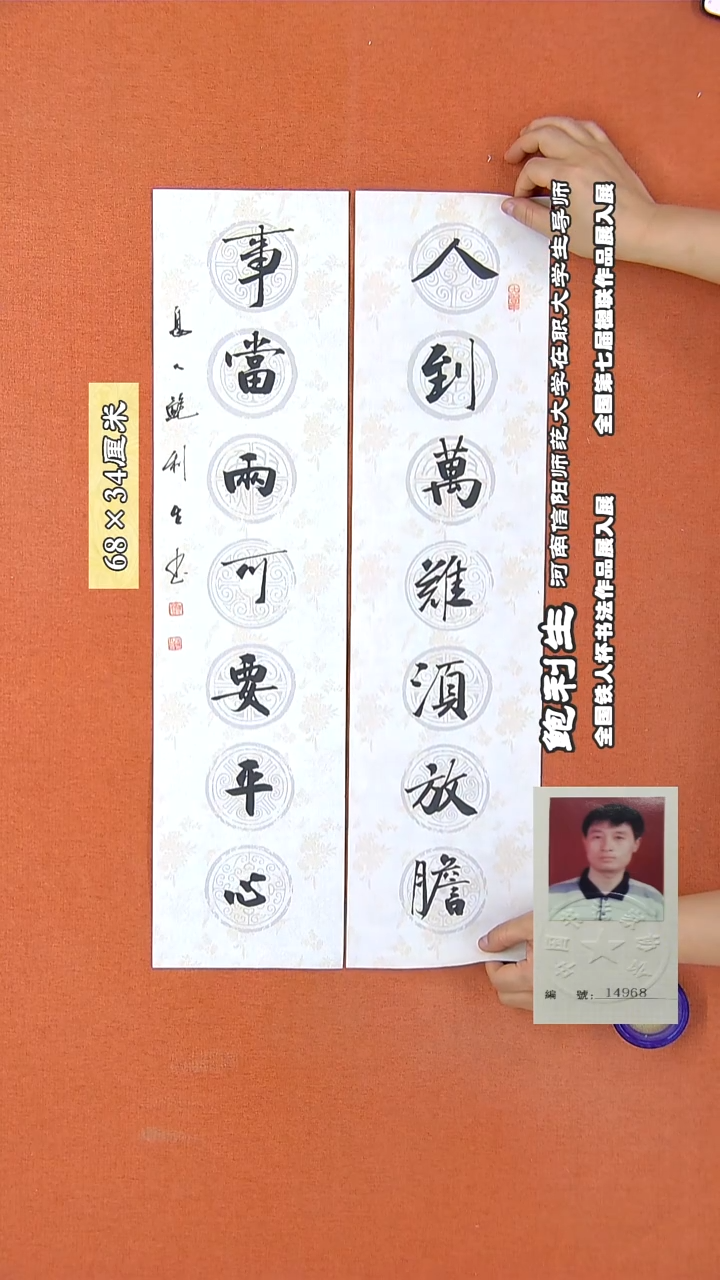 人到萬難須放膽
事當兩可要平心
鮑利生书
68×34厘米
鲍利生 河南信阳师范大学在职大学生导师
全国铁人杯书法作品展入展 全国第七届楹联作品展入展
編 號: 14968